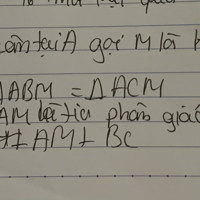 cân tại A gọi M là
ΔABM = ΔACM
AM là tia phân giác
AM ⊥ BC